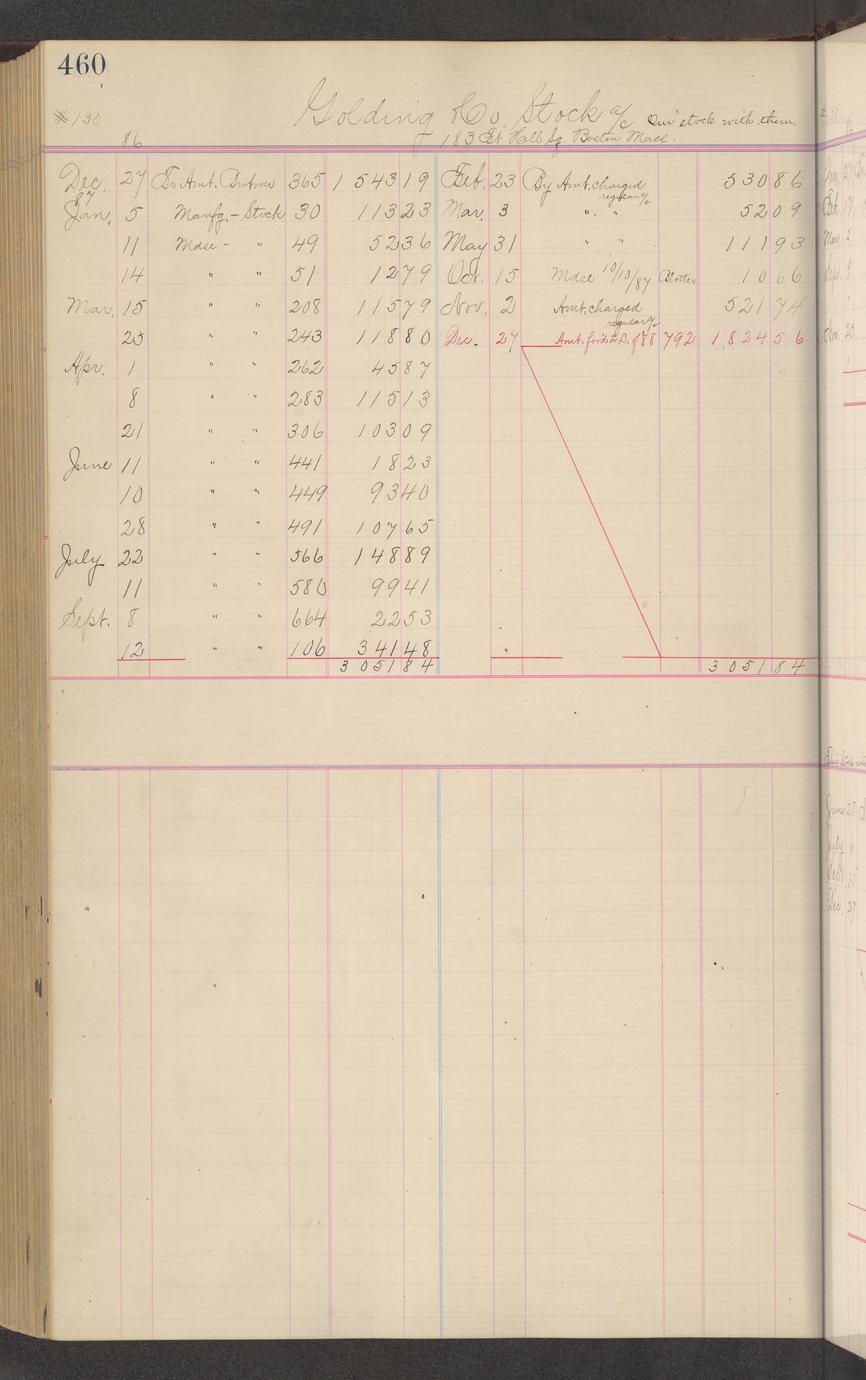 460
# 130 Golding & Co. Stock a/c Our stock with them.
86 183 Ft. Hall Sq. Boston Mass.
Dec. 27 To Amt. 365 1 543 19 Feb. 23 By Amt. charged 530 86
regular a/c
87
Jan. 5 Manfg. - Stock 30 113 23 Mar. 3 " " 52 09
11 Mdse - " 49 52 36 May 31 " " 111 93
14 " " 51 12 79 Oct. 15 Mdse 10/10/87 Blotter 10 66
Mar. 15 " " 208 115 79 Nov. 2 Amt. charged 521 74
regular a/c
25 " " 243 118 80 Dec. 27 Amt. for'd to L. of 88 792 1,824 56
Apr. 1 " " 262 45 87
8 " " 283 115 13
21 " " 306 103 09
June 11 " " 441 18 23
10 " " 449 93 40
28 " " 491 107 65
July 22 " " 566 148 89
11 " " 580 99 41
Sept. 8 " " 664 22 53
12 " " 106 341 48
3 051 84 3 051 84